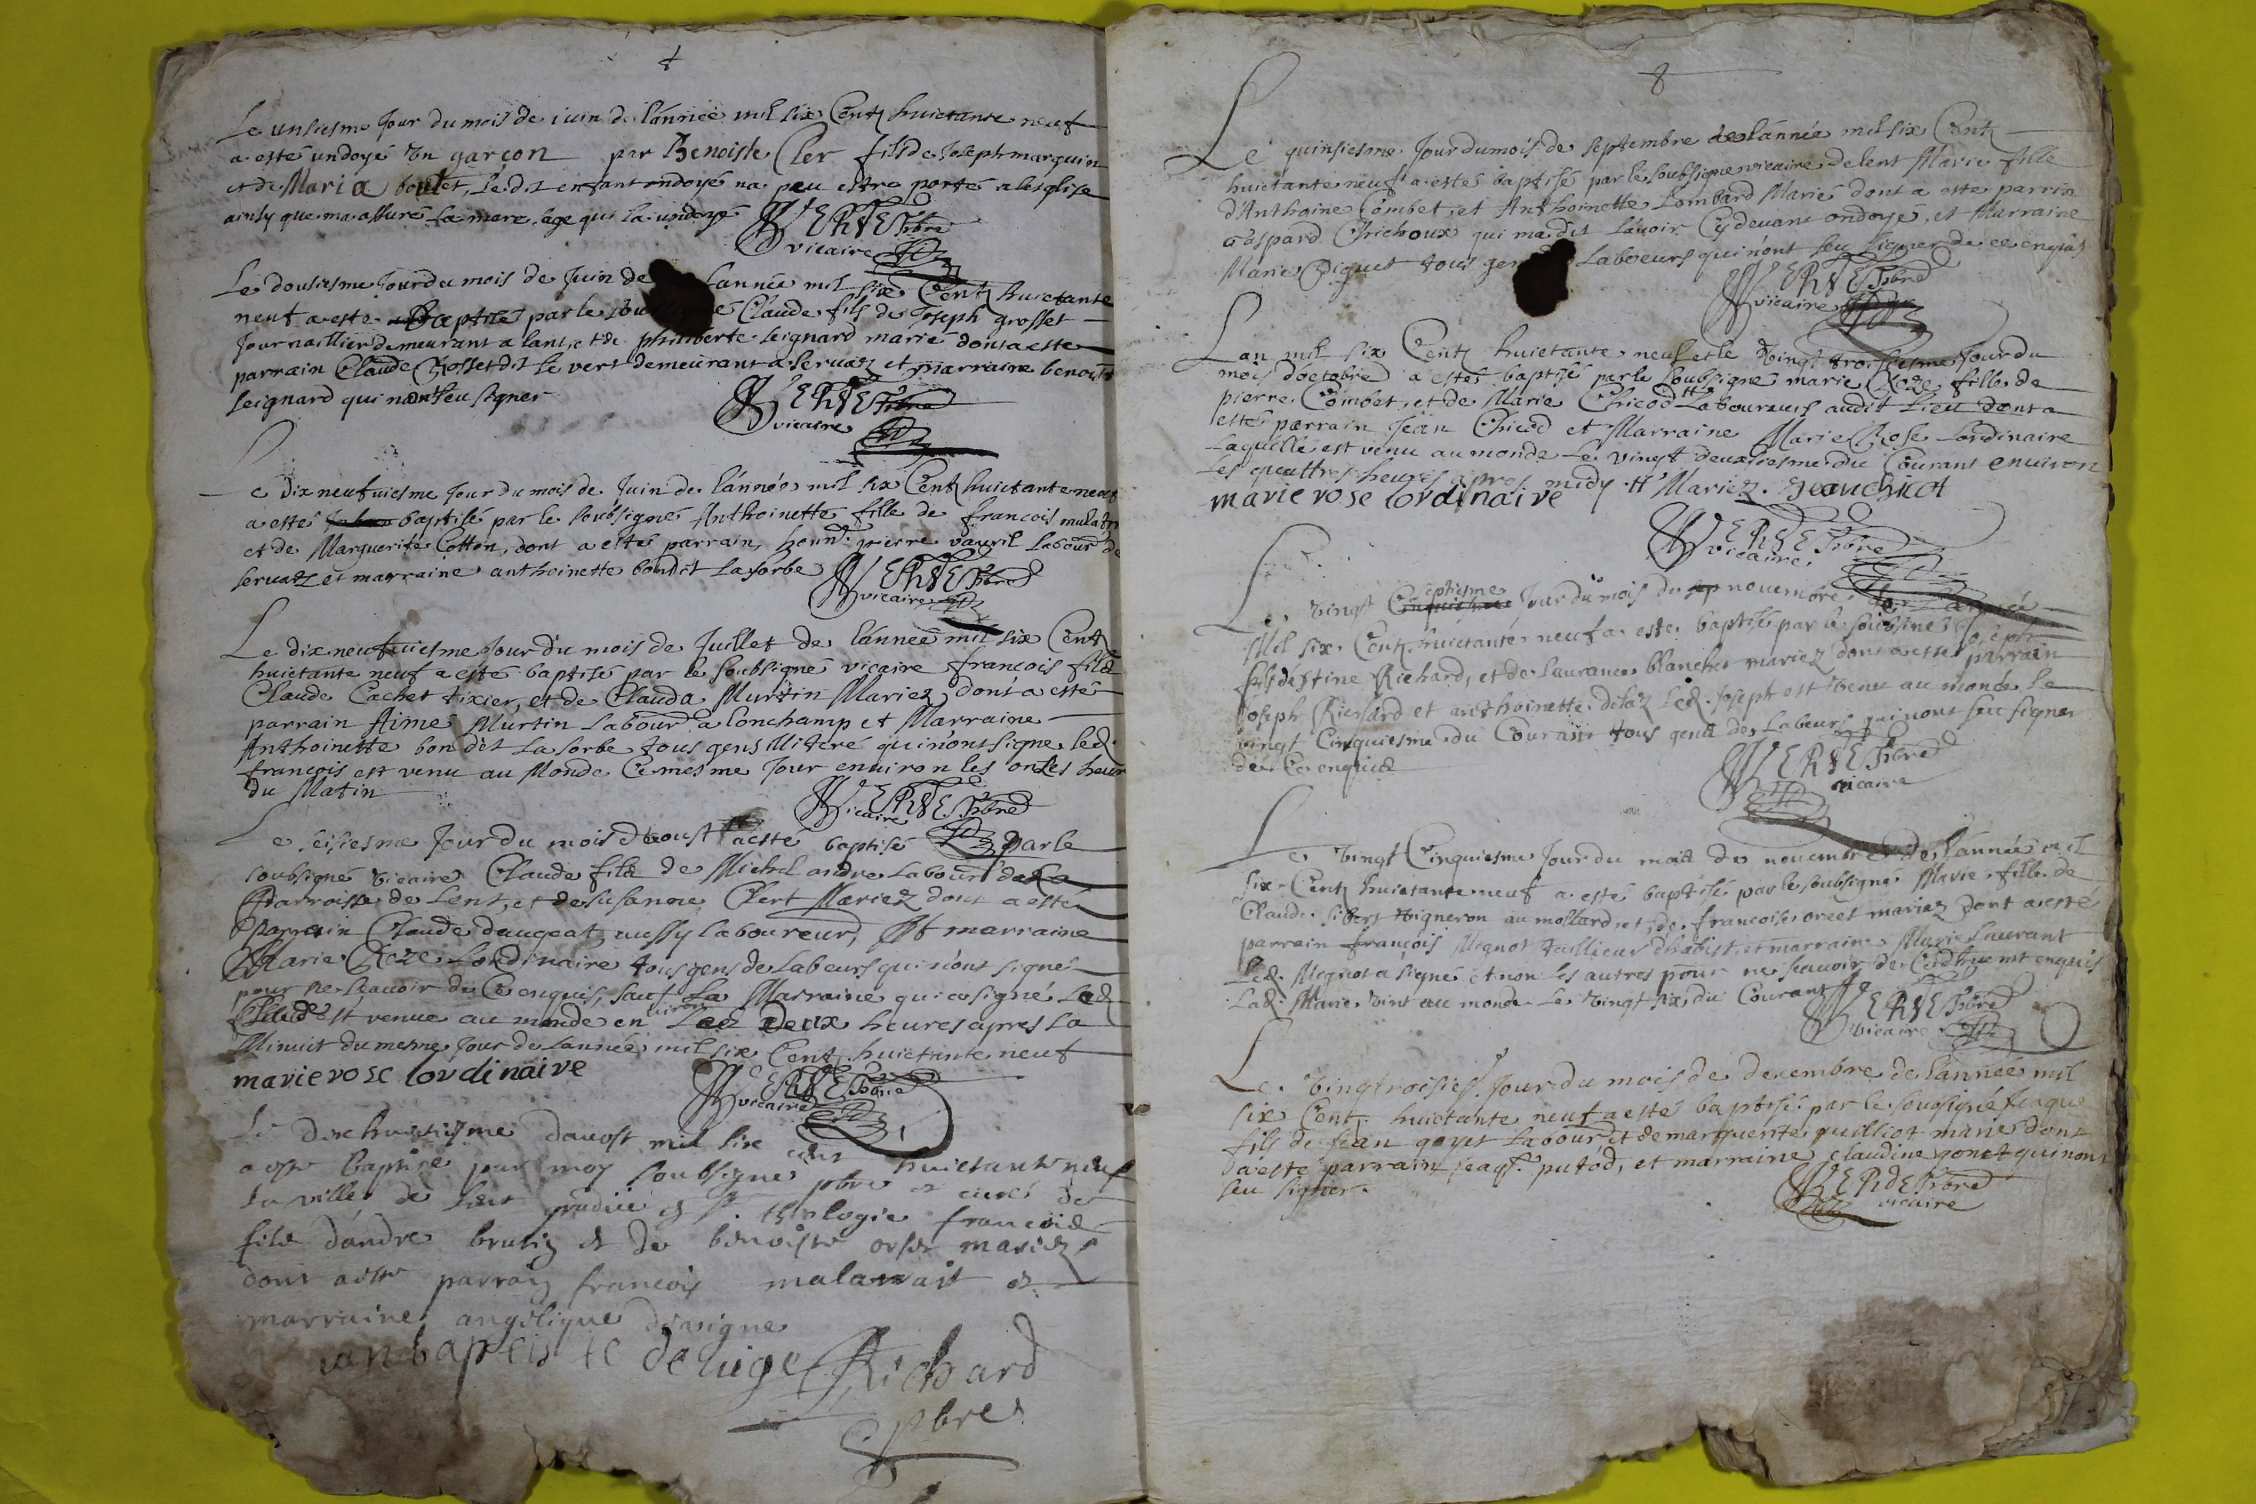 Le unsiesme Jour du mois de iuin de l'année mil six Centz huictante neuf
a esté undoyé Un garçon par Benoiste Cler fils de Joseph marguin
et de Maria boulet, Le dit enfant ondoyé na peu estre porté a lesglise
ainsy que ma assuré la mere sage qui la undoyé
VERNE Pbre
vicaire
Le dousiesme Jour du mois de Juin de l'année mil six Centz huictante
neuf a esté Baptisé par le Claude fils de Joseph grosset
Journaillier demeurant a lant, et de philiberte Leignard marié dont a este
parrain Claude Rosset dit le vert demeurant a servatz et Marraine benoiste
Leignard qui n'ont seu signer
VERNE Pbre
vicaire
Le dix neufviesme Jour du mois de Juin de l'année mil six Centz huictante neuf
a esté baptisé par le soubsigné Anthoinette fille de francois
et de Marguerite Cotton, dont a esté parrain, honn. pierre vauril labour de
servatz et marraine anthoinette bondit Lasorbe
VERNE Pbre
vicaire
Le dixneufviesme Jour du mois de Juillet de l'année mil six Centz
huictante neuf a esté baptisé par le soubsigné vicaire francois filz
Claude Cachet tixier, et de Clauda Murtin Mariez, dont a esté
parrain Aimé Murtin labour a lonchamp et Marraine
Anthoinette bondit La sorbe tous gens illiteré qui n'ont signe led.
francois est venu au Monde Ce mesme Jour environ les onses heur
du Matin
VERNE Pbre
vicaire
Le seisiesme Jour du mois daoust a esté baptisé parle
soubsigné vicaire Claude filz de Michel andre labour de La
Parroisse de Lent, et de Susanne Clert Mariez dont a este
parrain Claude daugeat aussy laboureur, Et marraine
Marie Roze Lordinaire tous gens de Labeurs qui n'ont signé
pour ne scavoir de Ce enquis, sauf La Marraine qui a signé Led
Claude est venue au monde environ Les Deux heures apres La
Minuit du mesme Jour de lannée mil six Centz huictante neuf
marie rose lordinaive
VERNE Pbre
vicaire
Le dixhuitiesme daoust mil six cent huictante neuf
a este baptisé par moy soubsigné pbre et curé de
la ville de Lent et St. theologie francois
filz d'andre brutiz et de benoiste mariez
dont a este parrain francois et
marraine angelique
Jan bapteiste deluge Richard
pbre
8
Le quinsiesme Jour du mois de septembre de lannée mil six Centz
huictante neuf a esté baptisé par le soubsigné vicaire de lent Marie fille
d'Anthoine Combet, et Anthoinette Lombard Marié dont a este parrin
Gaspard Chichoux qui ma dit l'avoir Cy devant ondoyé, et Marraine
Marie Piguet tous gens Laboeurs qui n'ont seu signer de ce enquis
VERNE Pbre
vicaire
Lan mil six Centz huictante neuf et le Vingt troisiesme Jour du
mois d'octobre a estés baptisé par le soubsigné marie Roze fille de
pierre Combet, et de Marie Chicod tt Laboureurs audit Lieu dont a
esté parrain Jean Chicod et Marraine Marie Rose Lordinaire
Laquelle est venu au monde Le vingt deuxsiesme du Courant environ
Les quattres heures apres midy. tt Mariez. Jean chicot
marie rose lordinaive
VERNE Pbre
vicaire
Le Vingt septiesme Jour du mois du novembre de Lannée
Mil six Centz huictante neuf a este baptisé par le soubsiné Joseph
fils d'estine Richard, et de laurance blanchet mariez dont a esté parrain
Joseph Richard et anthoinette Led. Joseph est Venu au monde le
vingt Cinquiesme du Courant tous gens de Labeurs qui nont seu signer
de Ce enquis
VERNE Pbre
vicaire
Le Vingt Cinquiesme Jour du mois de novembre de l'année mil
six Centz huictante neuf a esté baptisé par le soubsigné Marie fille de
Claude Libert Vigneron au mollard et de francoise mariez dont a esté
parrain francois Mignot tailleur dhabist et marraine Marie Laurant
Led. Mignot a signé et non les autres pour ne scavoir de Ce enquis
Lad. Marie Vint au monde Le Vingt six du Courant
VERNE Pbre
vicaire
Le Vingtroisies. Jour du mois de decembre de l'année mil
six Centz huictante neuf a esté baptisé par le soubsigné Jaque
fils de Jean goyet Labour et de marguerite guilliot marié dont
a esté parrain Jaq. putod, et marraine claudine gonet qui nont
seu signer.
VERNE Pbre
vicaire